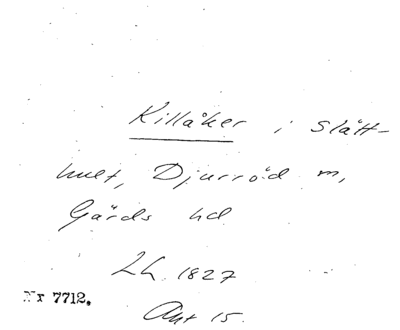 Killåker i Slätt-
hult, Djurröd m,
Gärds hd
Lh. 1827
Nr 7712.
Akt 15.